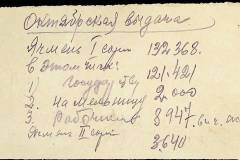 Октябрьская выдача
Ячмень I сорт 132.368.
В этом числе:
1) Государству 121.421
2. На мельницу 2000
3. Работникам 8947.
Ячмень II сорт
3.640